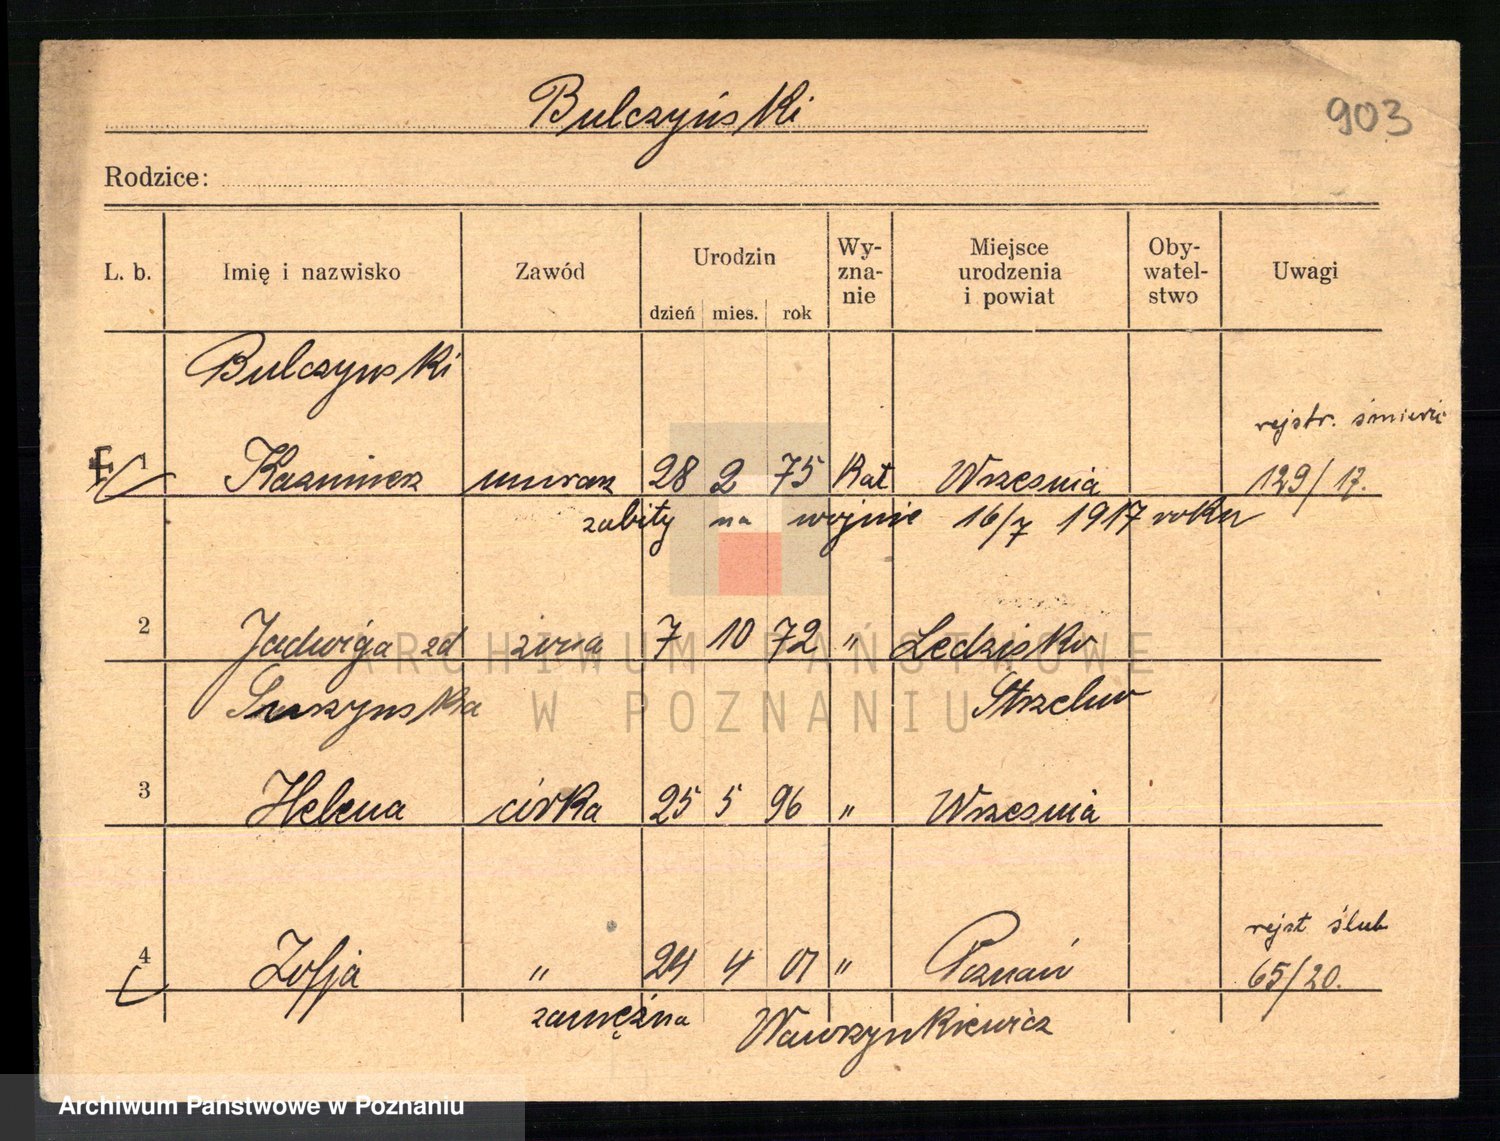 Bulczyński
903
Rodzice:
L. b. Imię i nazwisko Zawód Urodzin Wy-zna-nie Miejsce urodzenia i powiat Oby-watel-stwo Uwagi
dzień mies. rok
Bulczynski
rejstr. śmierci
1 Kazimierz murarz 28 2 75 Kat Wrzesnia 129/17.
zabity na wojnie 16/7 1917 roku
2 Jadwiga zd żona 7 10 72 "
Suszynska Strzelno
3 Helena córka 25 5 96 " Wrzesnia
rejst ślub
4 Zofja " 24 4 01 " Poznań 65/20.
zamężna Wawrzynkiewicz
ARCHIWUM PAŃSTWOWE
W POZNANIU
Archiwum Państwowe w Poznaniu